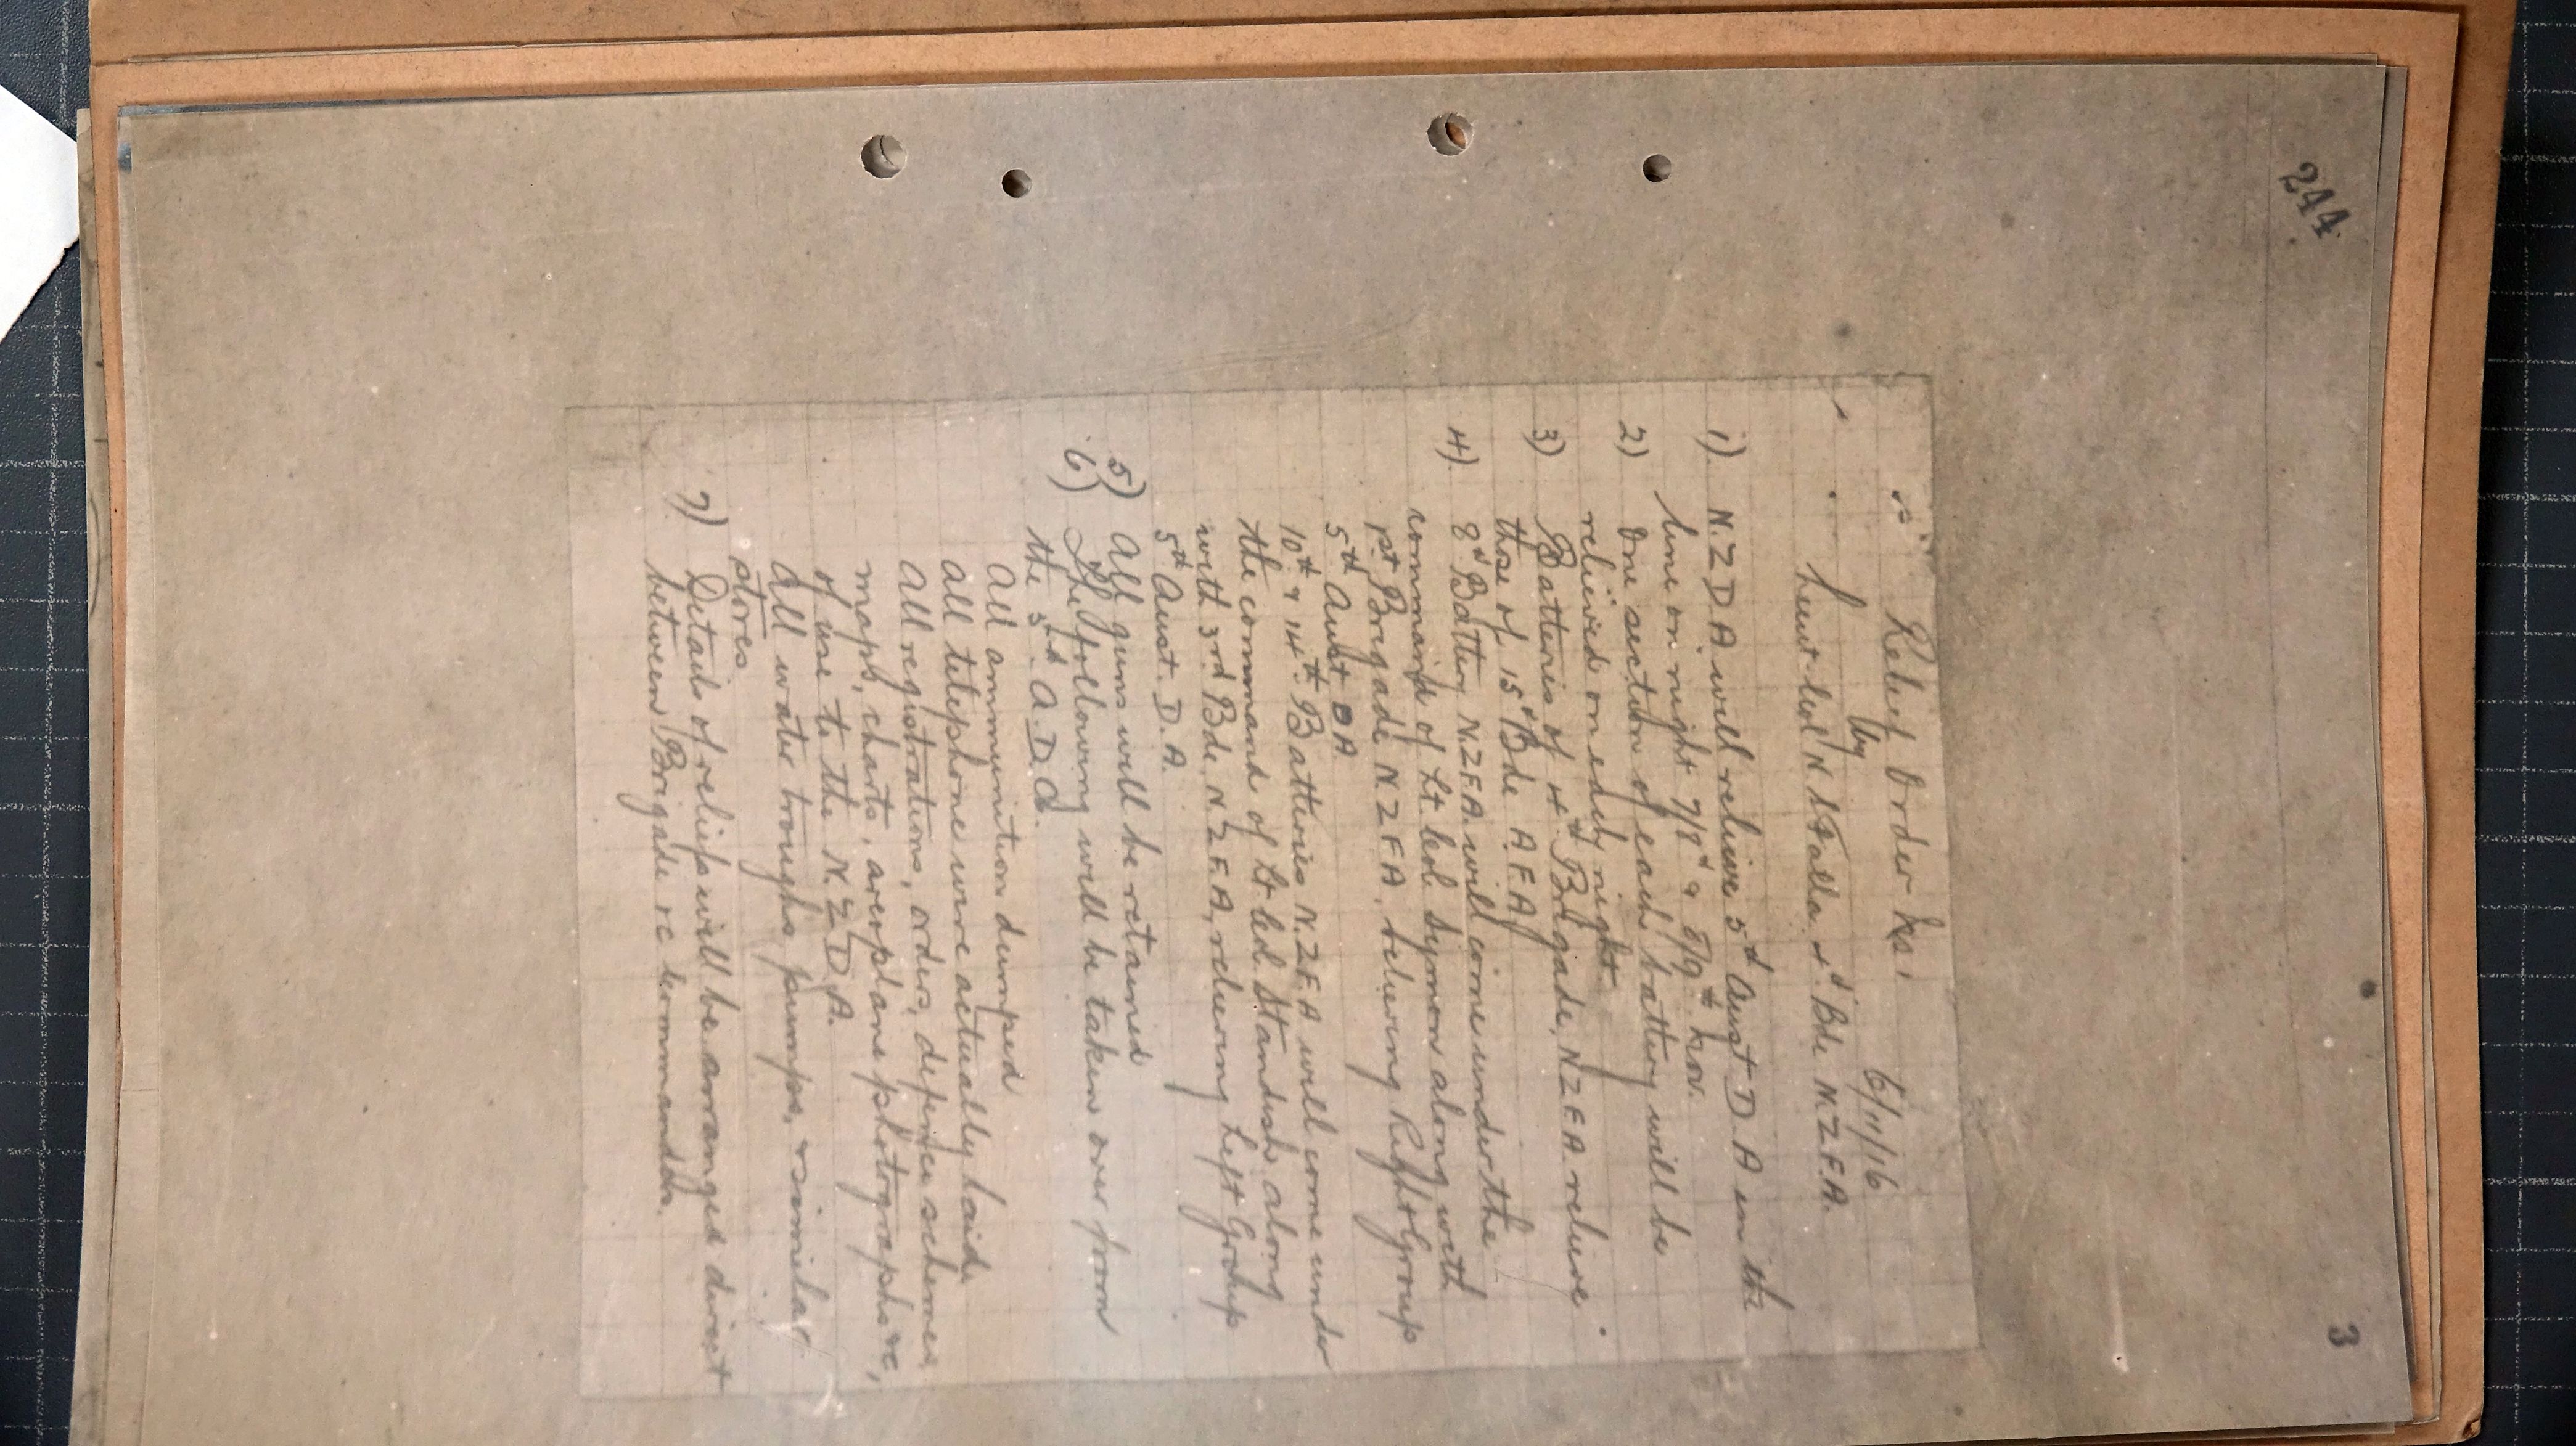 244
3
Relief Order No 1
6/11/16
by
Lieut Col N S Falla 4th Bde N.Z.F.A.
1) N.Z D.A. will relieve 5th Aust D.A in the
line on night 7/8th & 8/9th Nov.
2) One section of each battery will be
relieved on each night.
3) Batteries of 4th Brigade, N.Z.F.A. relieve
those of 15th Bde A.F.A.
4). 8th Battery N.Z.F.A. will come under the
command of Lt Col Symon along with
1st Brigade N.Z.F.A. relieving Right Group
5th Aust DA
10th & 14th Batteries N.Z.F.A will come under
the command of Lt Col. Standish along
with 3rd Bde N.Z.F.A, relieving Left Group
5th Aust. D.A.
5) All guns will be retained
6) The following will be taken over from
the 5th A.D.A.
All ammunition dumped
All telephone wire actually laid.
All registrations, orders, defence schemes,
maps, charts, aeroplane photographs &c,
of use to the N.Z D.A.
All water troughs, pumps, & similar
stores
7) Details of reliefs will be arranged direct
between Brigade &c Commanders.